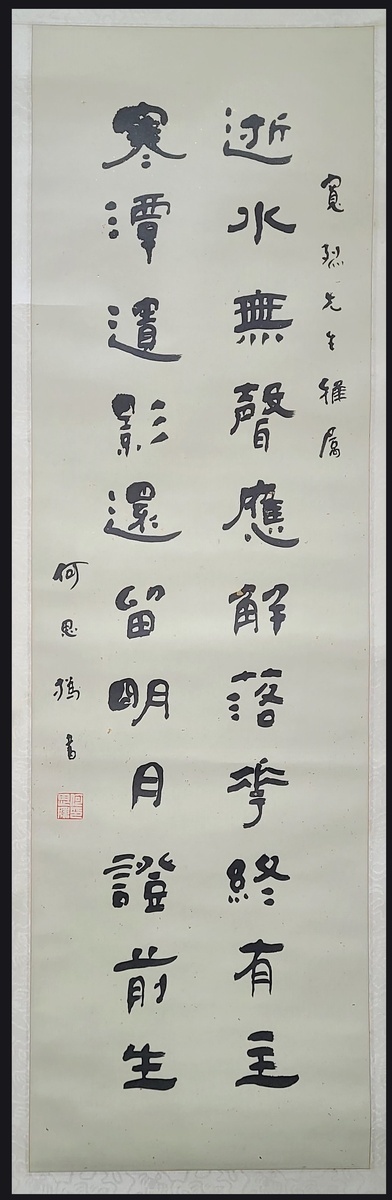 寬烈先生雅屬
逝水無聲應解落花終有主
寒潭遺影還留明月證前生
何思撝書